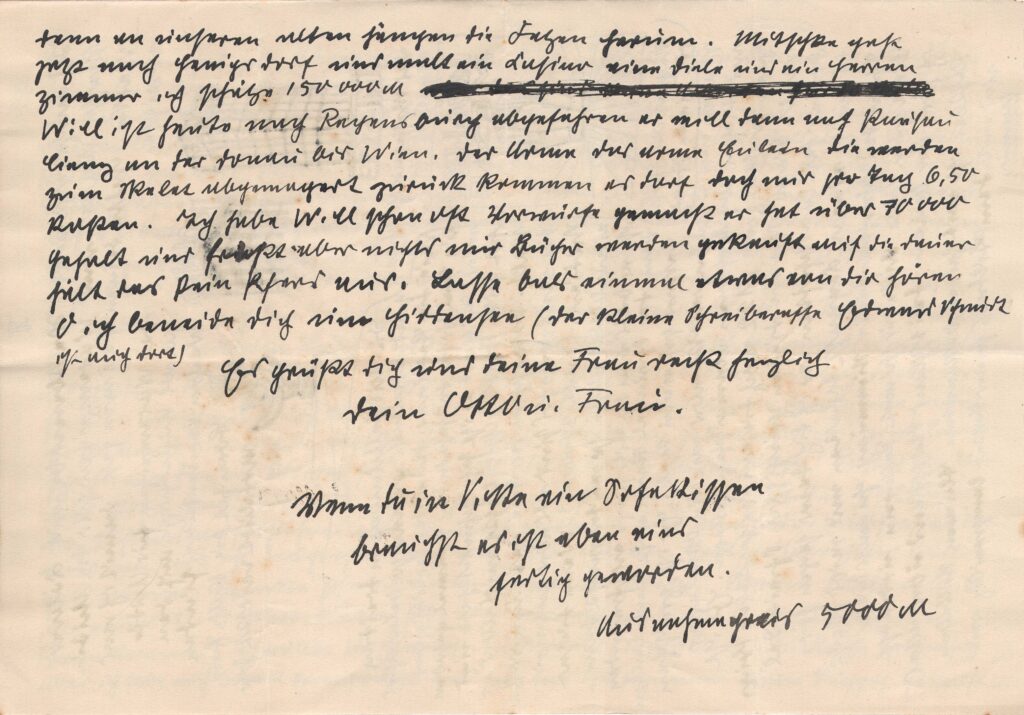 denn an unseren alten hängen die Fetzen herum. Mitschke geht
jetzt nach Henigsdorf und malt ein Casino eine Diele und ein Herren
zimmer ich schätze 150000M
Will ist heute nach Regensburg abgefahren er will dann auf
an der Donau bis Wien. Der Arme das arme die werden
zum Skelet abgemagert zurück kommen es darf doch nur pro Tag 6,50
kosten. Ich habe Will schon oft Vorwürfe gemacht er hat über 70000
Gehalt und frißt aber nichts nur Bücher werden gekauft auf die dauer
hält das kein Pferd aus. Lasse bals einmal etwas von dir hören
O ich beneide dich um Hiddensee (der kleine Schreiberaffe Schmidt
ist auch dort)
Es grüßt dich und deine Frau recht herzlich
dein Otto u. Frau.
Wenn du in Vitte ein Sofakissen
brauchst es ist eben eins
fertig geworden.
Ausnahmepreis 5000M